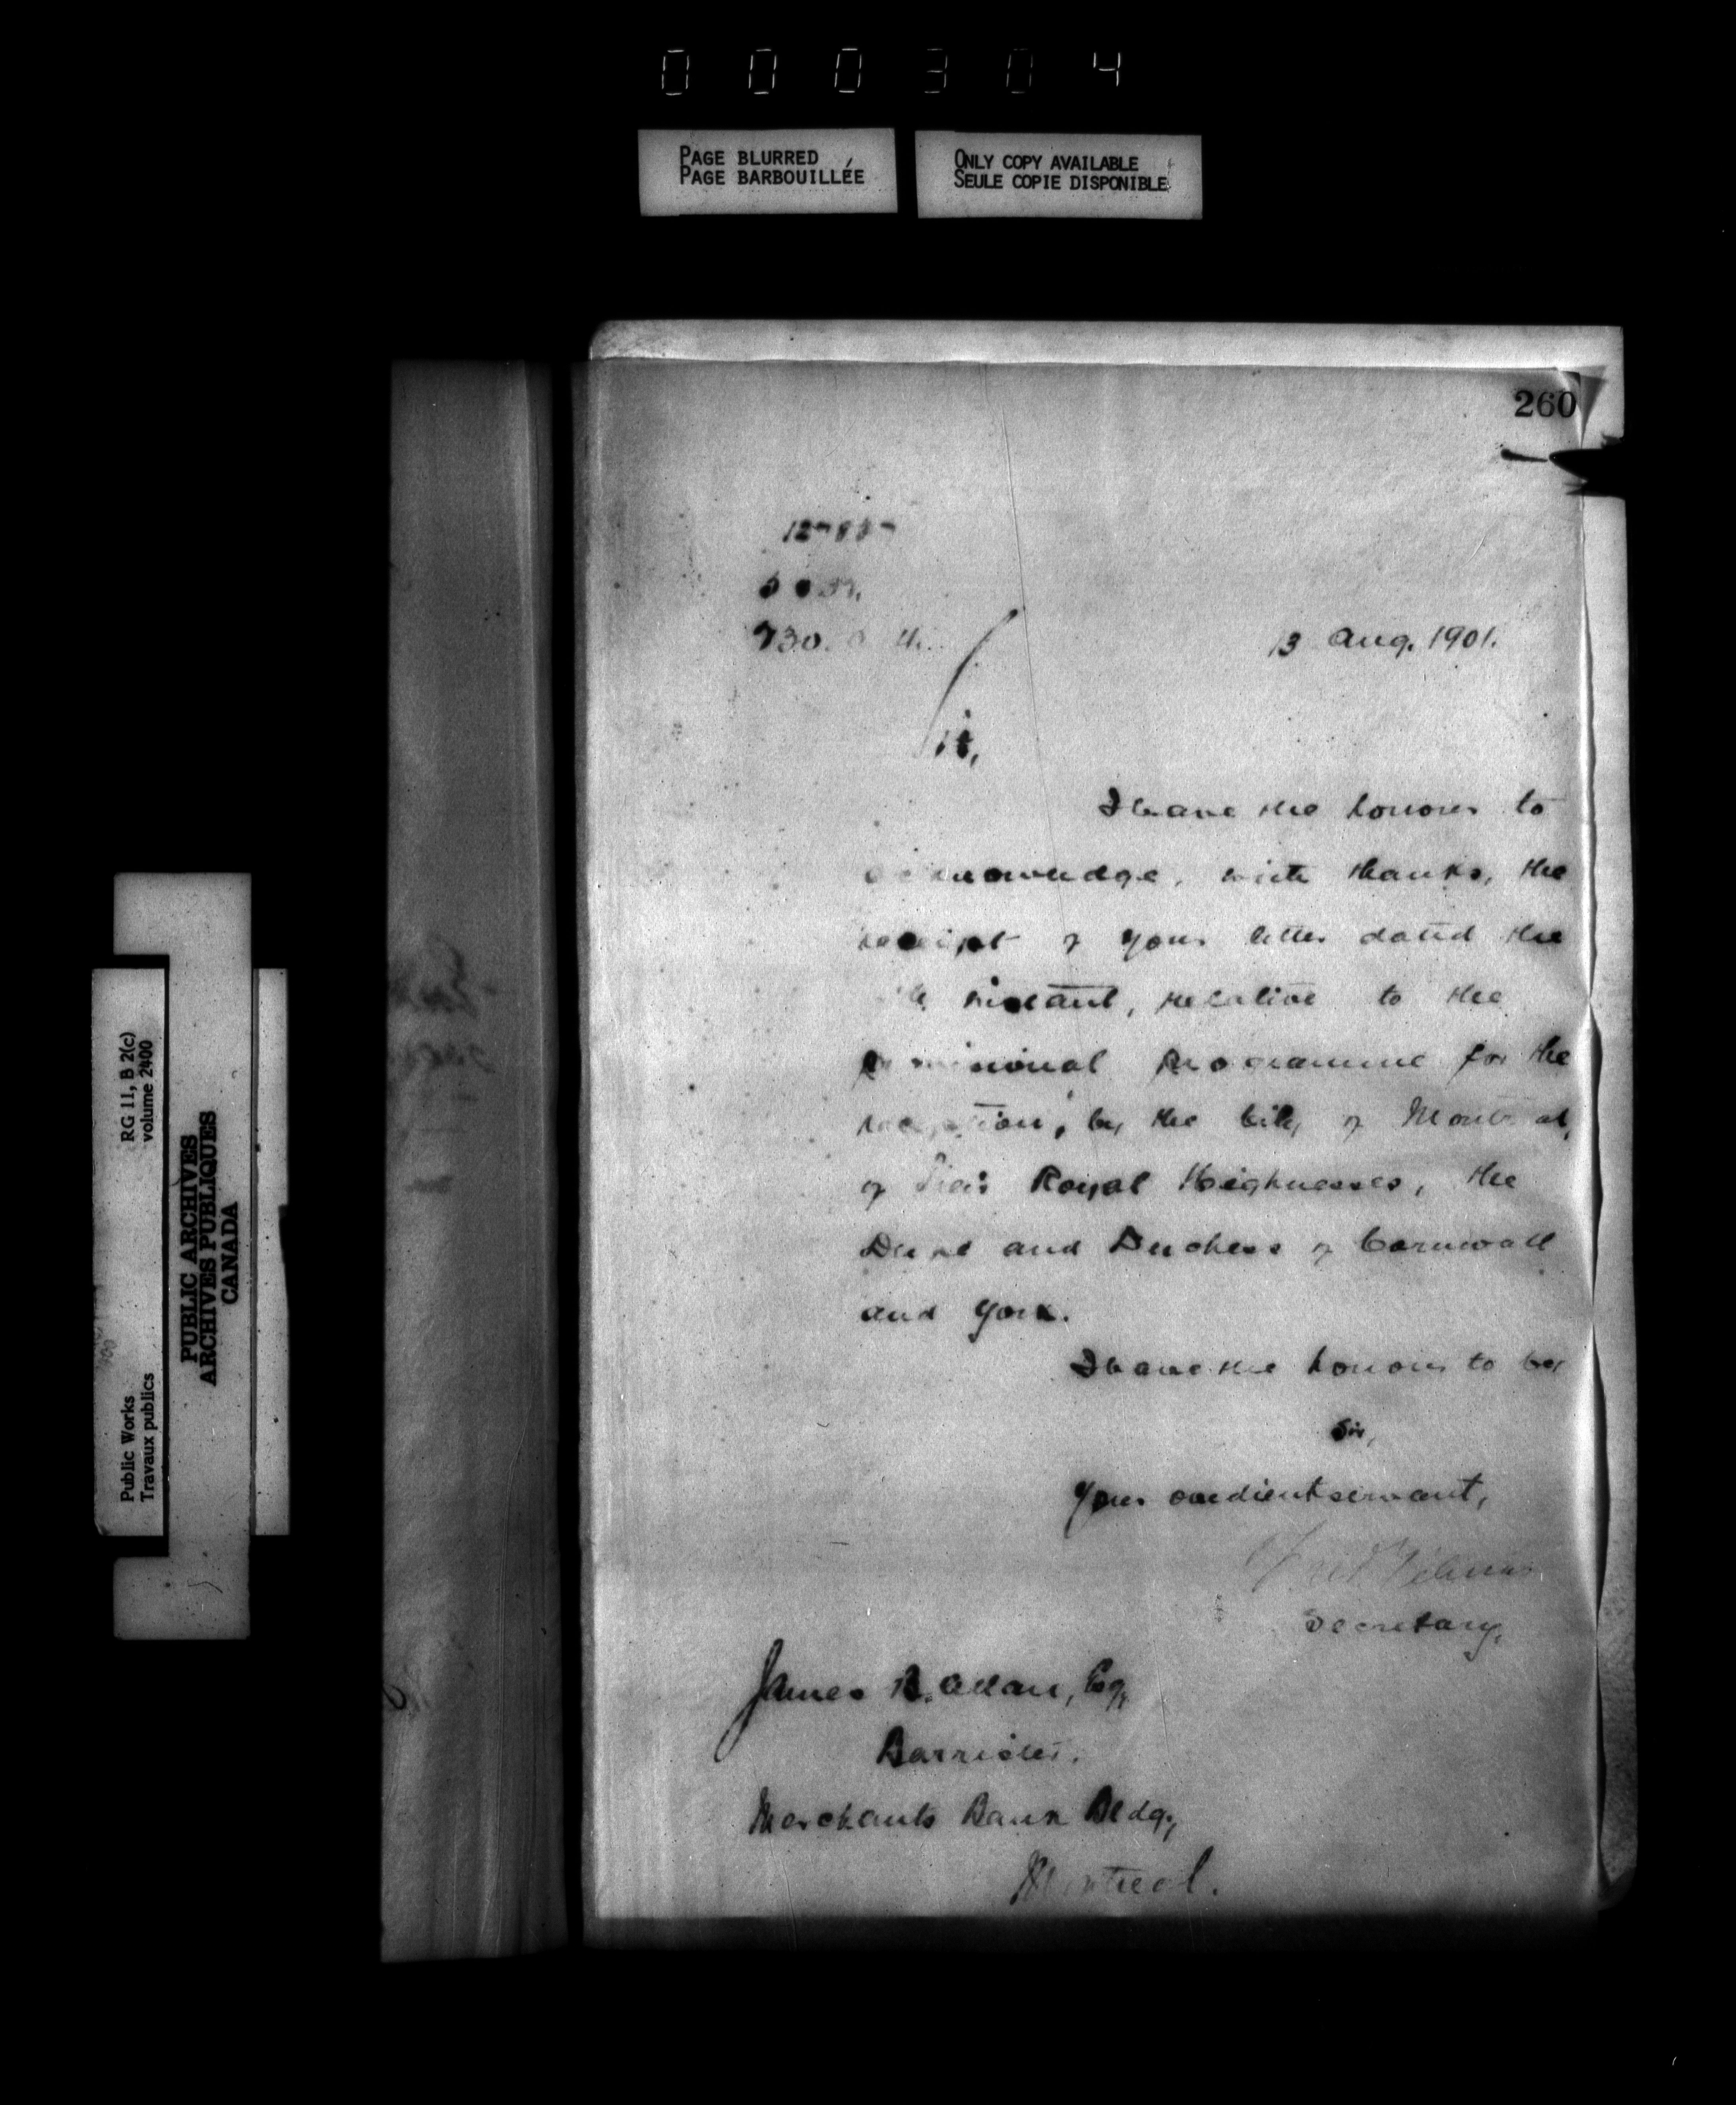 000304
PAGE BLURRED
PAGE BARBOUILLÉE
ONLY COPY AVAILABLE
SEULE COPIE DISPONIBLE
260
13 Aug. 1901.
Sir,
I have the honour to
acknowledge, with thanks, the
receipt of your letter dated the
instant, relative to the
provisional programme for the
reception, by the City of Montreal,
of Their Royal Highnesses, the
Duke and Duchess of Cornwall
and York.
I have the honour to be,
Sir,
Your obedient servant,
Secretary.
James R. Allan, Esq,
Barrister.
Merchants Bank Bldg.,
Montreal.
RG 11, B 2(c)
volume 2400
Public Works
Travaux publics
PUBLIC ARCHIVES
ARCHIVES PUBLIQUES
CANADA